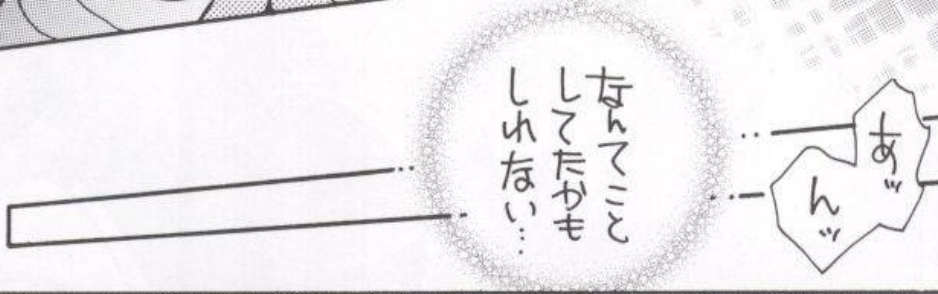 あッ
んッ
なんてこと
してたかも
しれない…